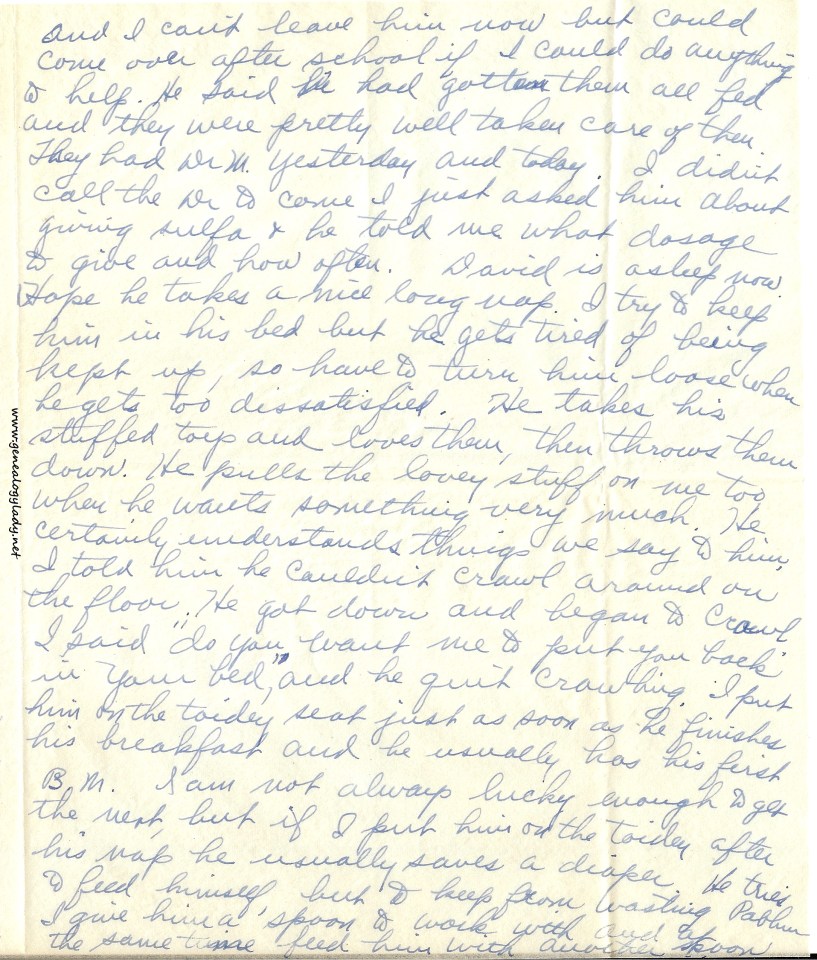 and I can't leave him now but could
come over after school if I could do anything
to help. He said he had gotten them all fed
and they were pretty well taken care of then.
They had Dr M. yesterday and today. I didn't
call the Dr to come I just asked him about
giving sulfa & he told me what dosage
to give and how often. David is asleep now.
Hope he takes a nice long nap. I try to keep
him in his bed but he gets tired of being
kept up, so have to turn him loose when
he gets too dissatisfied. He takes his
stuffed toys and loves them, then throws them
down. He pulls the lovey stuff on me too
when he wants something very much. He
certainly understands things we say to him,
I told him he couldn't crawl around on
the floor. He got down and began to crawl
I said "do you want me to put you back
in your bed," and he quit crawling. I put
him on the toidey seat just as soon as he finishes
his breakfast and he usually has his first
B.M. I am not always lucky enough to get
the next, but if I put him on the toidey after
his nap he usually saves a diaper. He tries
to feed himself, but to keep from wasting Pablum
I give him a spoon to work with and at
the same time feed him with another spoon
www.genealogylady.net